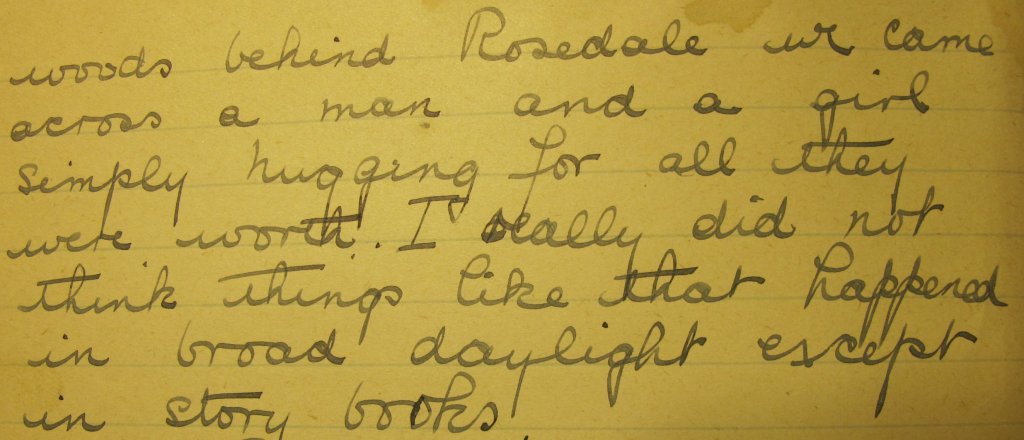 woods behind Rosedale we came
across a man and a girl
simply hugging for all they
were worth. I really did not
think things like that happened
in broad daylight except
in story books.